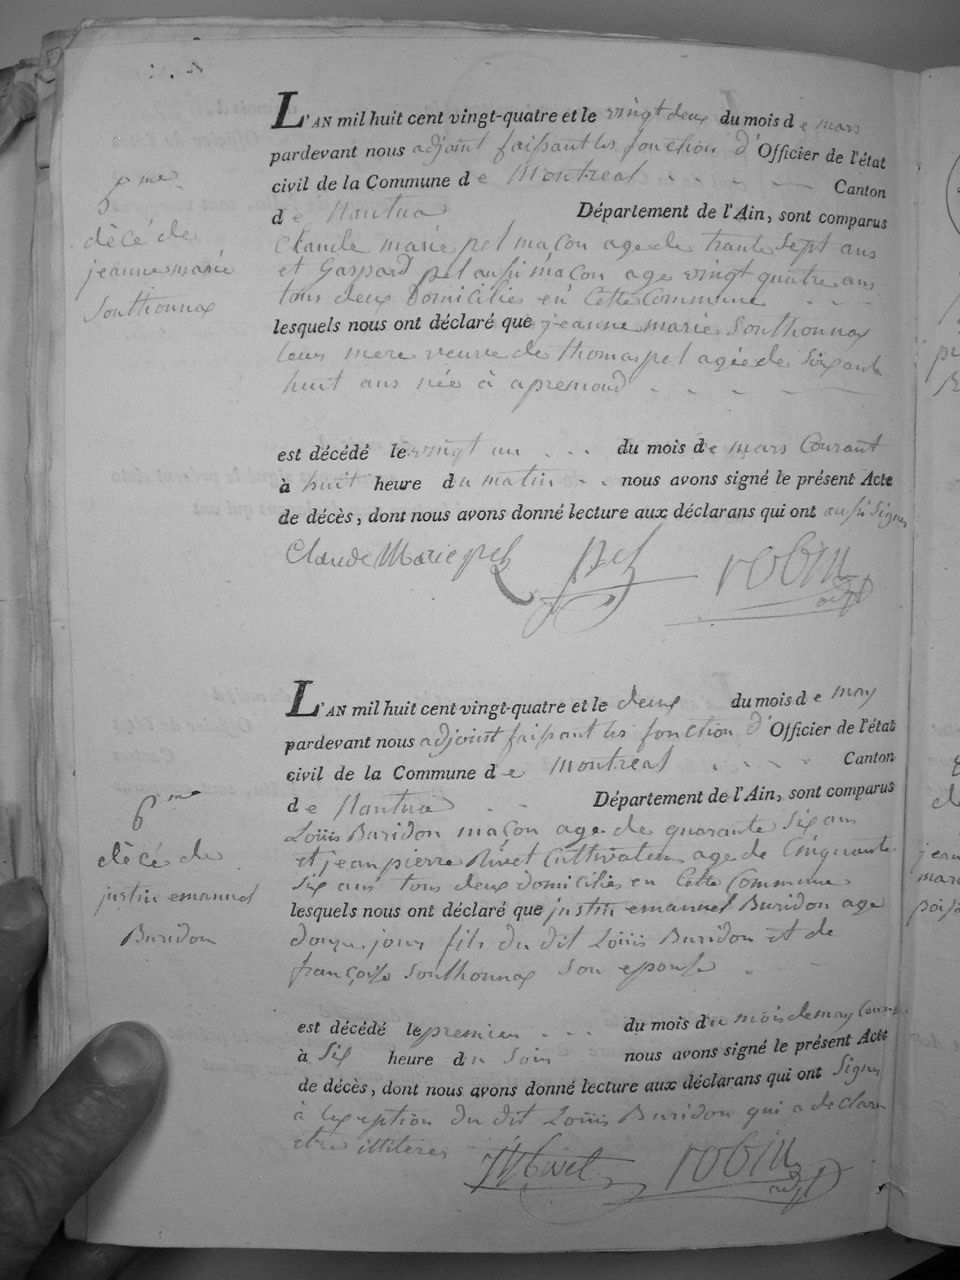 5me
décé de
jeanne marie
Southonnax
L'AN mil huit cent vingt-quatre et le vingt deux du mois de mars
pardevant nous adjoint faisant les fonction d'Officier de l'état
civil de la Commune de Montreal Canton
de Nantua Département de l'Ain, sont comparus
Claude marie pel maçon age de trante Sept ans
et Gaspard pel aussi maçon age vingt quatre ans
tous deux Domiciliés en Cette Commune
lesquels nous ont déclaré que jeanne marie Southonnax
leur mere veuve de thomas pel agée de Soixante
huit ans née à apremond
est décédé le vingt un du mois de mars Courant
à huit heure du matin nous avons signé le présent Acte
de décès, dont nous avons donné lecture aux déclarans qui ont aussi Signés
Claude Marie pel Pel robin
adj
6me
décé de
justin emanuel
Buridon
L'AN mil huit cent vingt-quatre et le deux du mois de may
pardevant nous adjoint faisant les fonction d'Officier de l'état
civil de la Commune de Montréal Canton
de Nantua Département de l'Ain, sont comparus
Loüis Buridon maçon age de quarante Six ans
et jean pierre Nivet Cultivateur age de Cinquante
Six ans tous deux domiciliés en Cette Commune
lesquels nous ont déclaré que justin emanuel Buridon age
douze jours fils du dit Loüis Buridon et de
françoise Southonnax Son epouse
est décédé le premier du mois du mois de may Courant
à Six heure du Soir nous avons signé le présent Acte
de décès, dont nous avons donné lecture aux déclarans qui ont Signés
à lexeption du dit Loüis Buridon qui a declare
etre illiteres
Nivet robin
adj